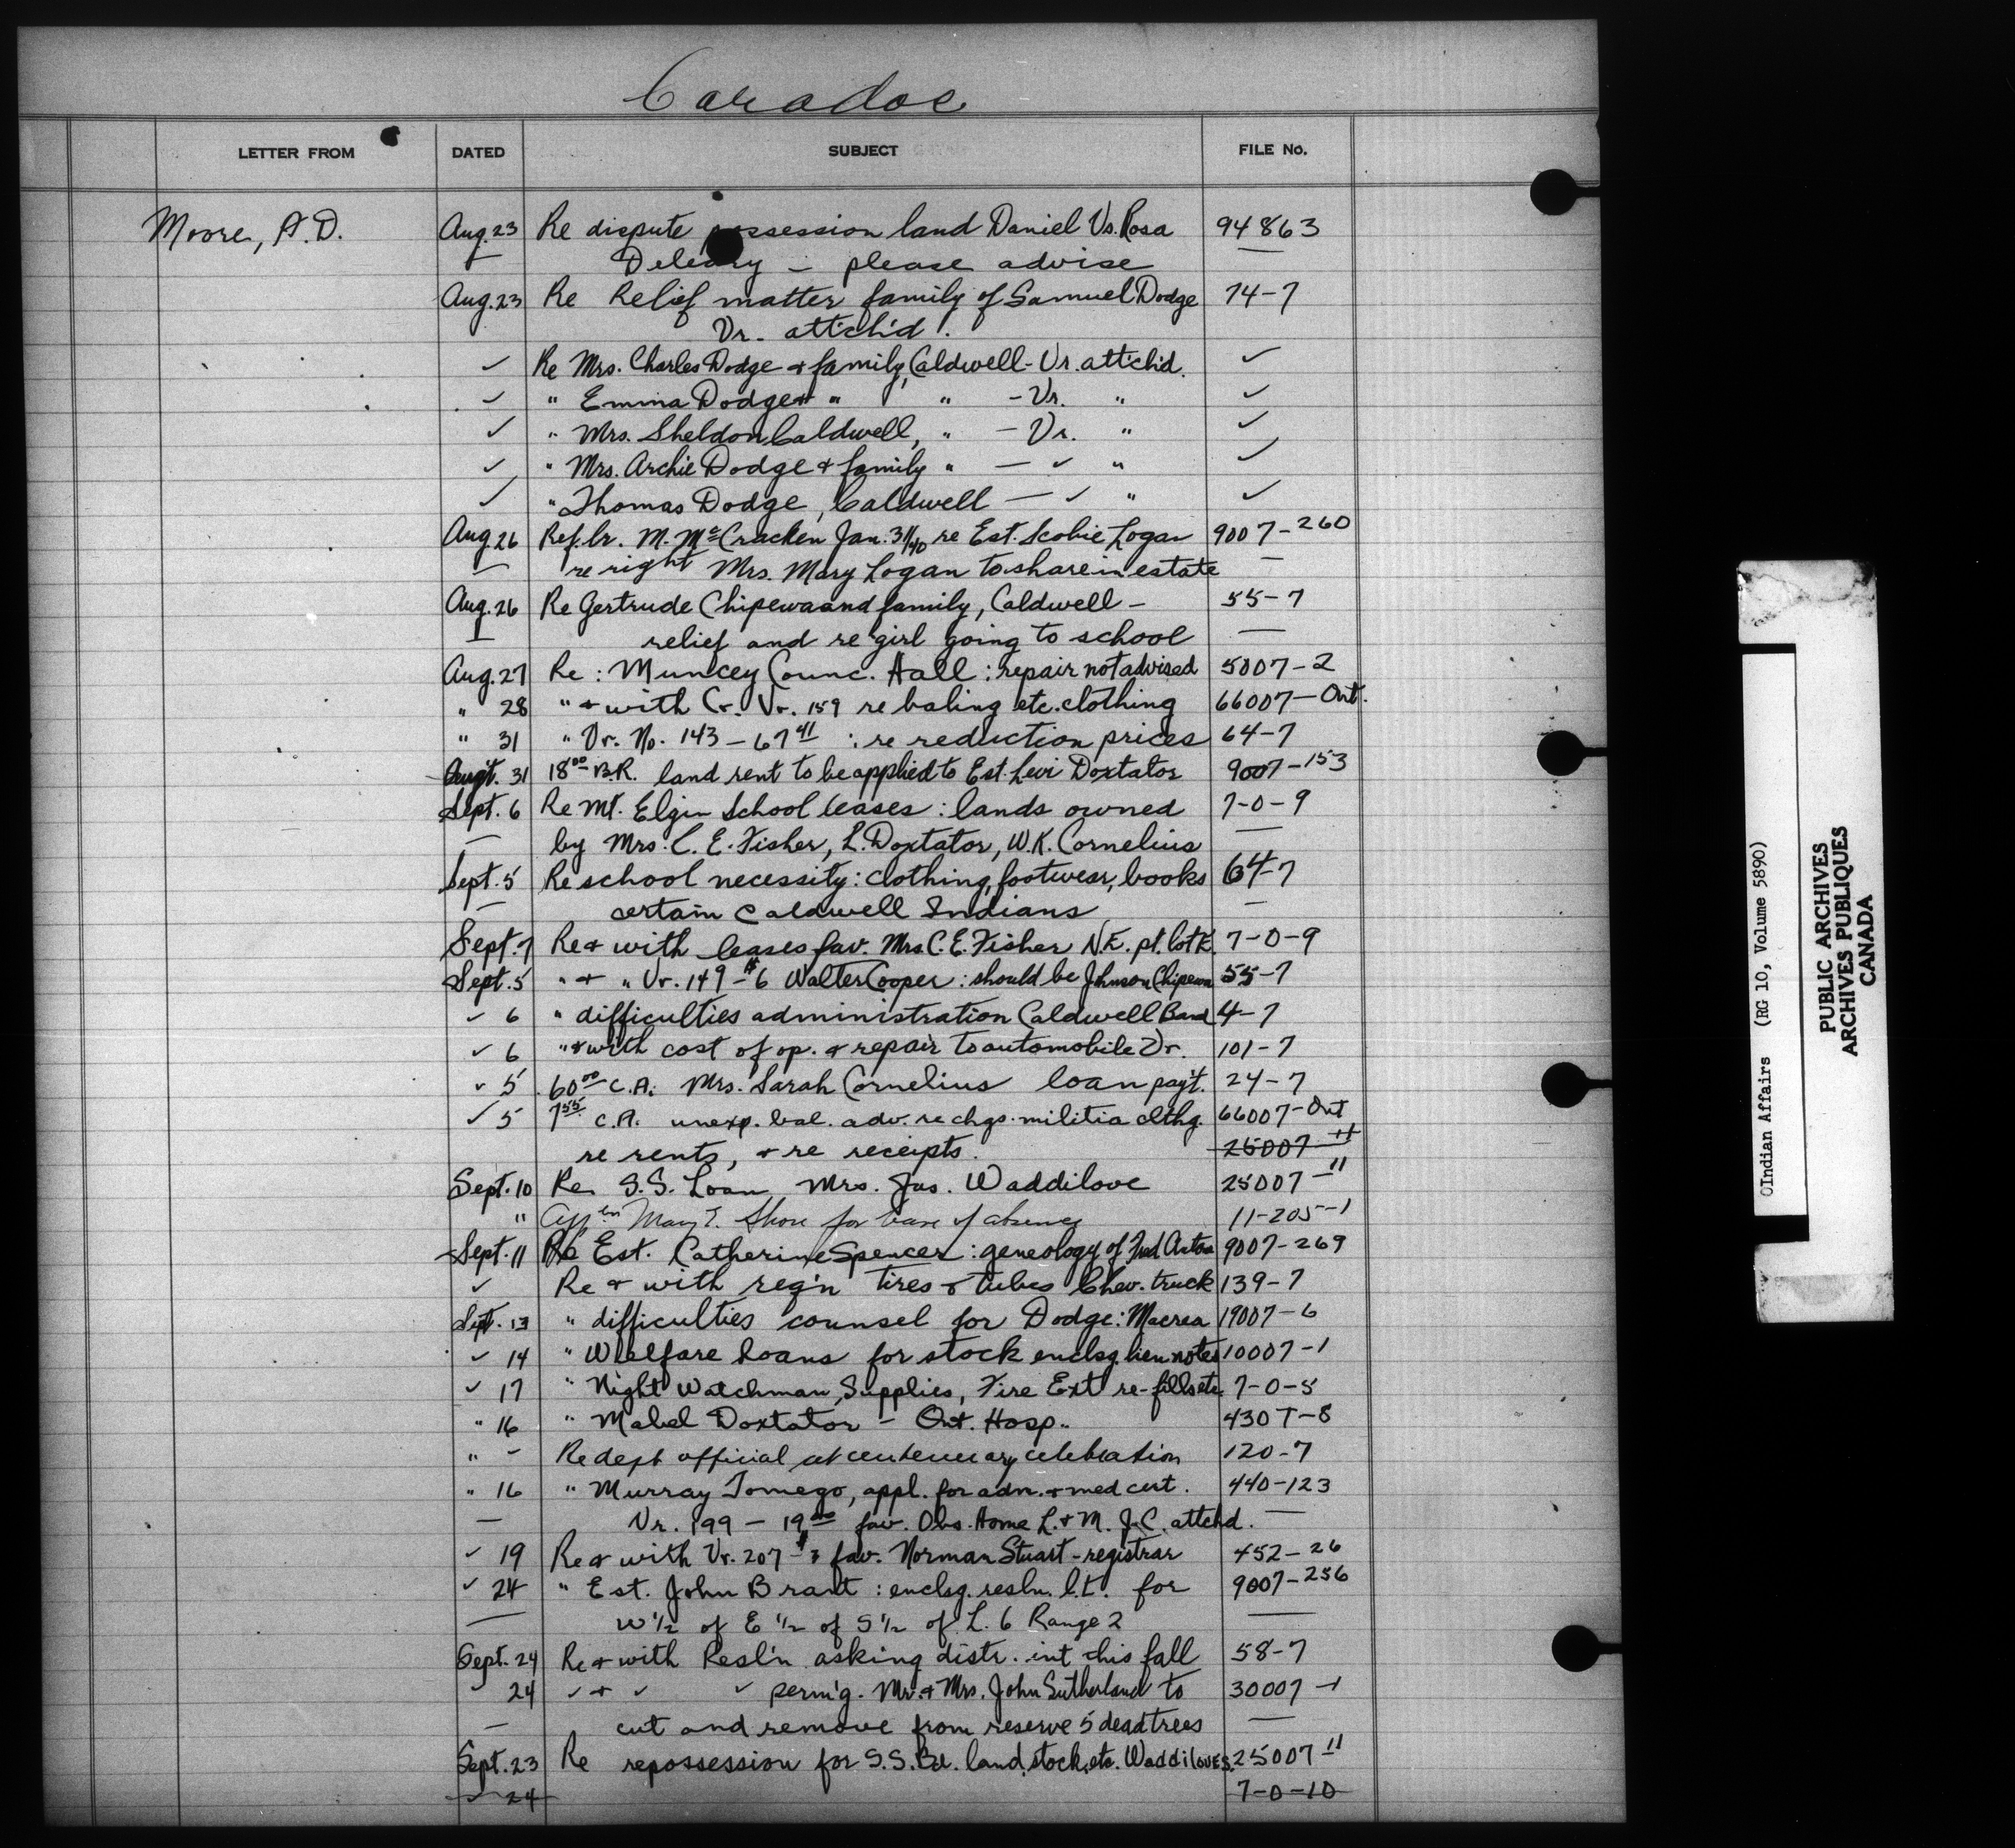 Caradoc
LETTER FROM DATED SUBJECT FILE No.
Moore, A.D. Aug. 23 Re dispute possession land Daniel Vs. Rosa 94863
— Deleary – please advise —
Aug. 23 Re Relief matter family of Samuel Dodge 74-7
Vr. attch'd.
✓ Re Mrs. Charles Dodge + family, Caldwell - Vr. attch'd. ✓
✓ " Emma Dodge + " " - Vr. " ✓
✓ " Mrs. Sheldon Caldwell, " — Vr. " ✓
✓ " Mrs. Archie Dodge + family " — ✓ " ✓
✓ " Thomas Dodge, Caldwell — ✓ " ✓
Aug. 26 Ref. lr. M. McCracken Jan. 31/40 re Est. Scobie Logan 9007-260
— re right Mrs. Mary Logan to share in estate —
Aug. 26 Re Gertrude Chipewa and family, Caldwell – 55-7
— relief and re girl going to school —
Aug. 27 Re: Muncey Counc. Hall: repair not advised 5007-2
" 28 " + with Cr. Vr. 159 re baling etc. clothing 66007-Ont.
" 31 " Vr. No. 143 – 67 41 : re reduction prices 64-7
Aug't. 31 18 00 B.R. land rent to be applied to Est. Levi Doxtator 9007-153
Sept. 6 Re Mt. Elgin School leases: lands owned 7-0-9
— by Mrs. C. E. Fisher, L. Doxtator, W.K. Cornelius —
Sept. 5 Re school necessity: clothing, footwear, books 64-7
— certain Caldwell Indians —
Sept. 7 Re + with leases fav. Mrs C. E. Fisher N.E. pt. lot E. 7-0-9
Sept. 5 " + " Vr. 149 - $6 Walter Cooper: should be Johnson Chipewa 55-7
✓ 6 " difficulties administration Caldwell Band 4-7
✓ 6 " + with cost of op. + repair to automobile Vr. 101-7
✓ 5 60 00 C.A. Mrs. Sarah Cornelius loan pay't. 24-7
✓ 5 7 55 C.A. unexp. bal. adv. re chgs. militia clthg. 66007-Ont
re rents, + re receipts. 25007-11
Sept. 10 Re S.S. Loan Mrs. Jas. Waddilove 25007-11
" Mary E. Shore for leave of absence 11-205-1
Sept. 11 Re Est. Catherine Spencer: geneology of Fred 9007-269
✓ Re + with reg'n tires + tubes Chev. truck 139-7
Sept. 13 " difficulties counsel for Dodge: Macrea 19007-6
✓ 14 " Welfare Loans for stock enclsg. lien notes 10007-1
✓ 17 " Night Watchman, Supplies, Fire Ext re-fills etc 7-0-5
" 16 " Mabel Doxtator – Ont. Hosp. 4307-8
" – Re dept official at centenary celebration 120-7
" 16 " Murray Tomego, appl. for adm. + med cert. 440-123
— Vr. 199 – 19 00 fav. Obs. Home L. + M. J.C. attchd. —
✓ 19 Re + with Vr. 207 - $3 fav. Norman Stuart - registrar 452-26
✓ 24 " Est. John Brant: enclsg. resln. l.t. for 9007-256
— W 1/2 of E 1/2 of S 1/2 of L. 6 Range 2 —
Sept. 24 Re + with Resl'n asking distr. int this fall 58-7
24 ✓ + ✓ ✓ perm'g. Mr. + Mrs. John Sutherland to 30007-1
— cut and remove from reserve 5 dead trees —
Sept. 23 Re repossession for S.S. Bd. land, stock, etc. Waddiloves 25007-11
✓ 24 7-0-10
Indian Affairs (RG 10, Volume 5890)
PUBLIC ARCHIVES
ARCHIVES PUBLIQUES
CANADA